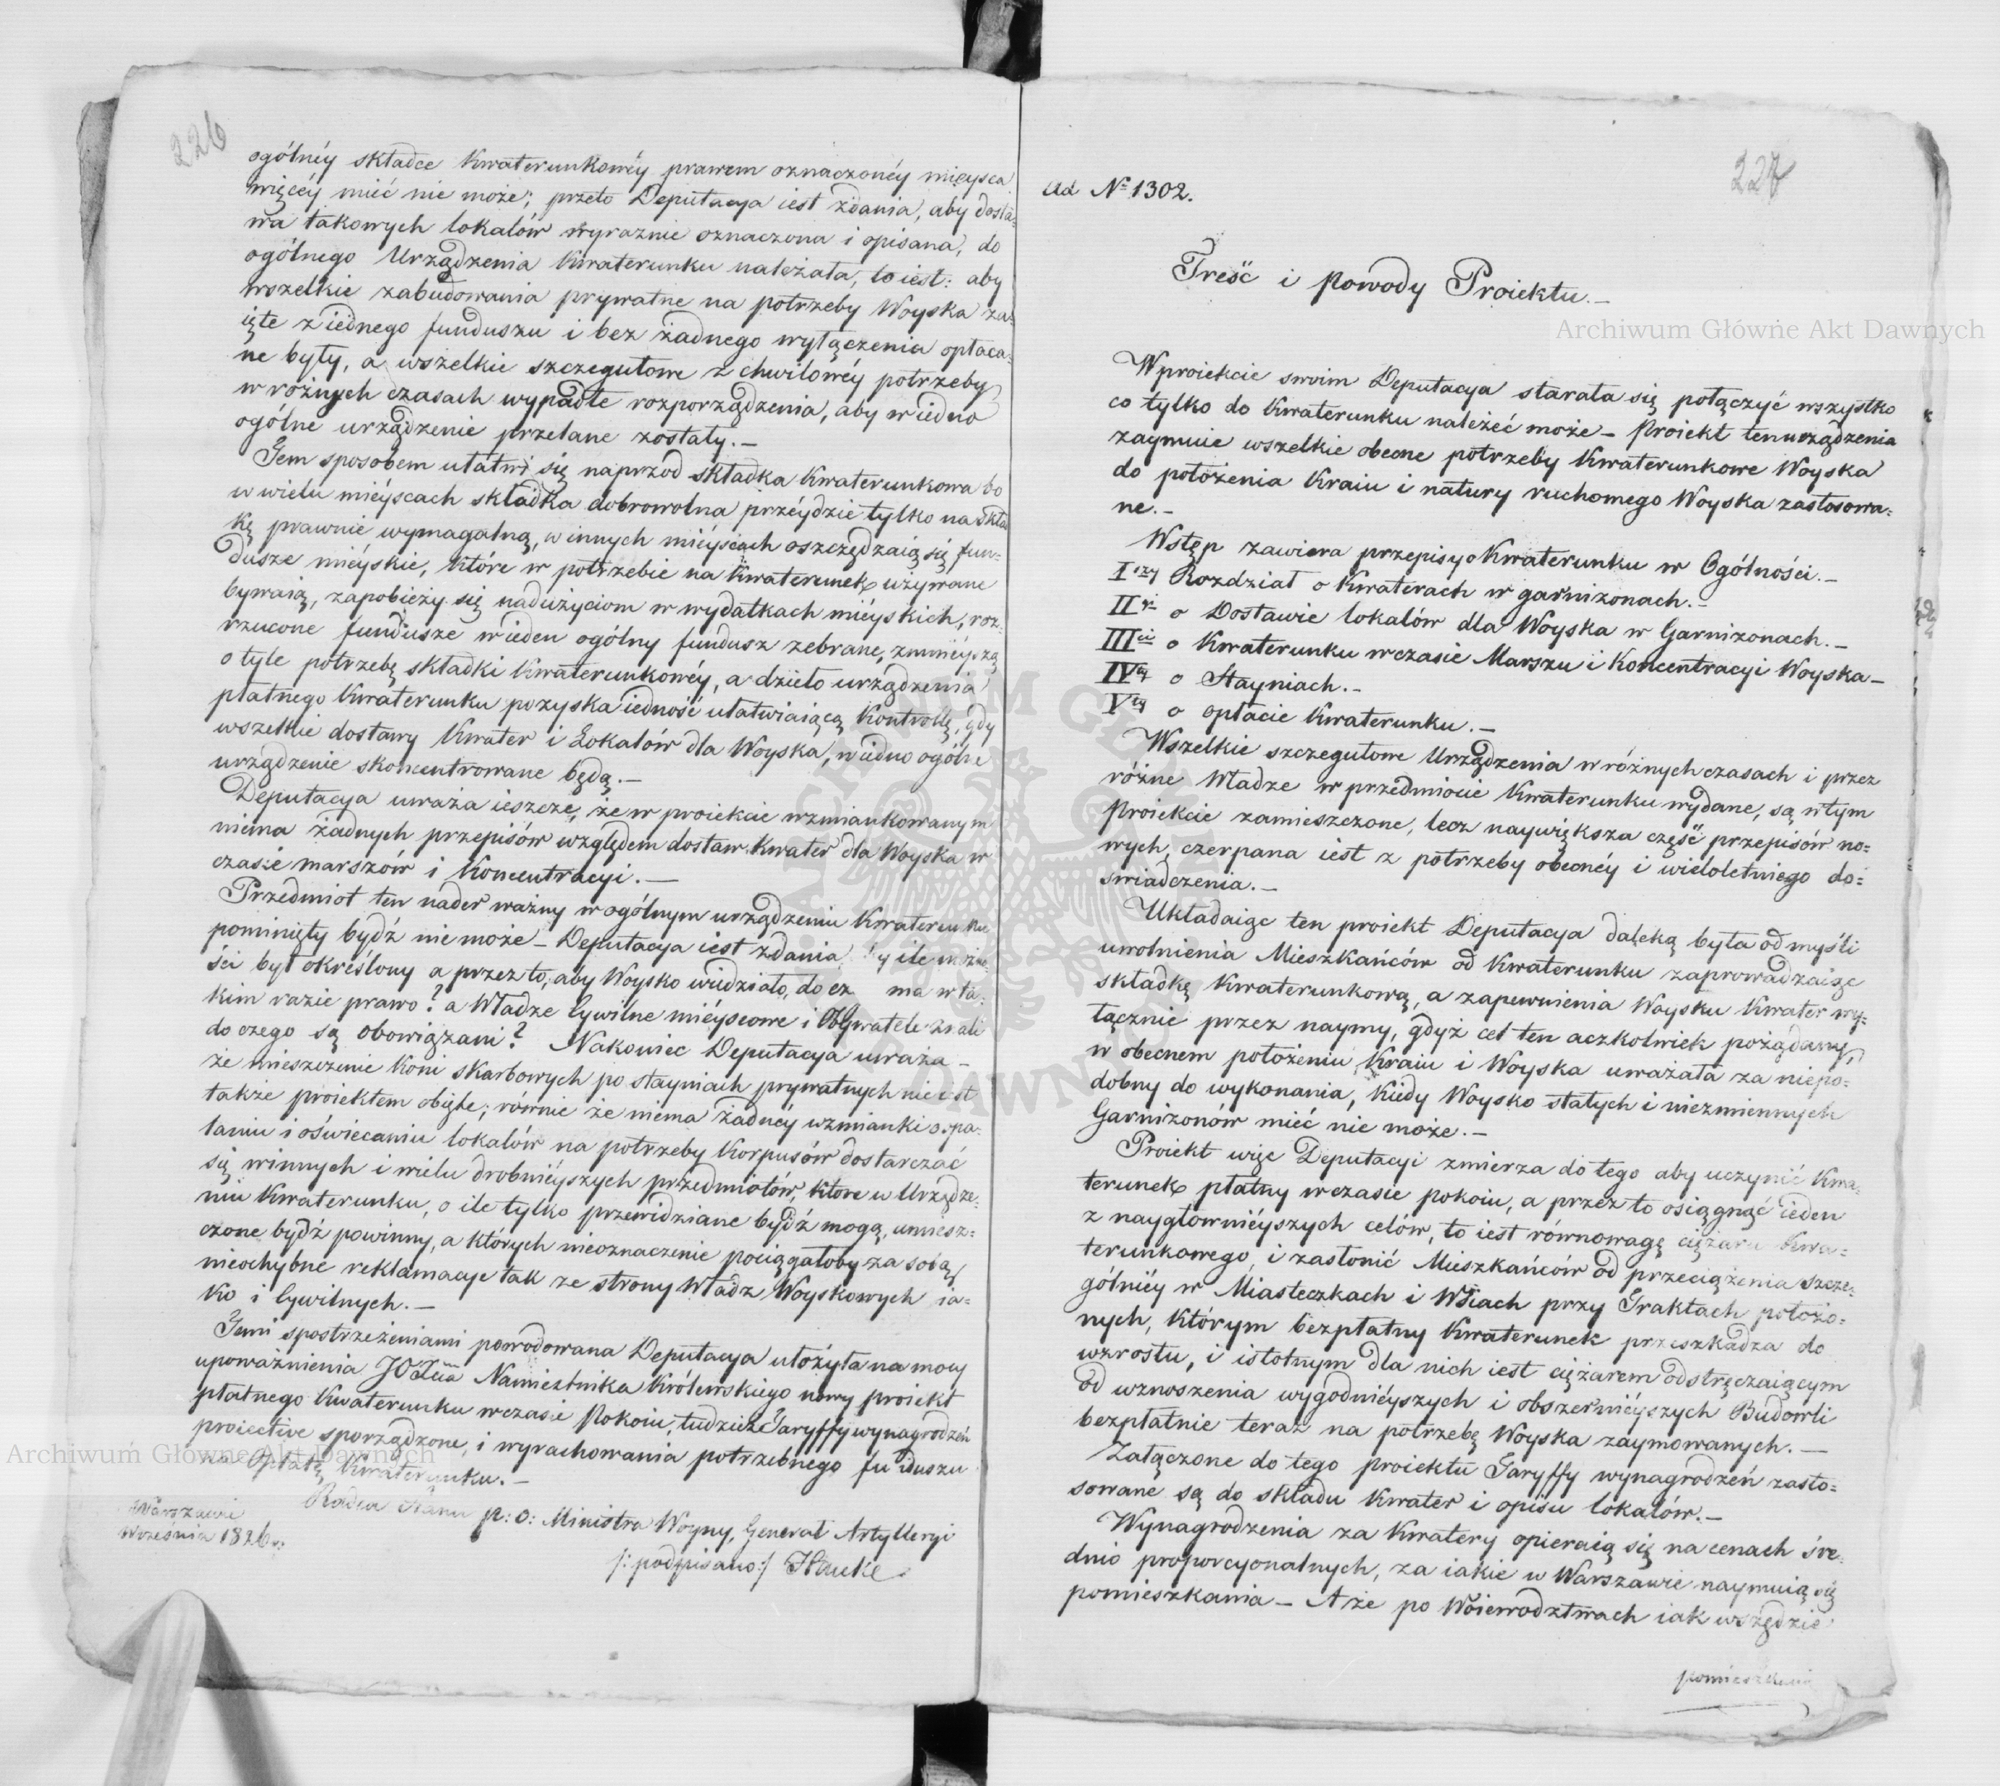 226
ogólnéy składce Kwaterunkowéy prawem oznaczonéy mieysca
więcéy mieć nie może; przeto Deputacya iest zdania, aby dosta=
wa takowych lokalów wyraznie oznaczona i opisana, do
ogólnego Urządzenia Kwaterunku należała, to iest: aby
wszelkie zabudowania prywatne na potrzeby Woyska za=
ięte z iednego funduszu i bez żadnego wyłączenia opłaca=
ne były, a wszelkie szczegułowe z chwilowéy potrzeby
w rożnych czasach wypadłe rozporządzenia, aby w iedno
ogólne urządzenie przelane zostały.—
Tem sposobem ułatwi się naprzod składka Kwaterunkowa bo
w wielu mieyscach składka dobrowolna przéydzie tylko na skład
kę prawnie wymagalną, w innych mieyscach oszczędzaią się fun=
dusze mieyskie, które w potrzebie na Kwaterunek używane
bywaią, zapobieży się nadużyciom w wydatkach mieyskich, roz=
rzucone fundusze w ieden ogólny fundusz zebrane, zmnieyszą
o tyle potrzebę składki Kwaterunkowéy, a dzieło urządzenia
płatnego Kwaterunku pozyska iedność ułatwiaiącą Kontrollę, gdy
wszelkie dostawy Kwater i Lokalów dla Woyska, w iedno ogólne
urządzenie skoncentrowane będą.—
Deputacya uważa ieszcze, że w proiekcie wzmiankowanym
niema żadnych przepisów względem dostaw Kwater dla Woyska w
czasie marszów i Koncentracyi.—
Przedmiot ten nader ważny w ogólnym urządzeniu Kwaterunku
pominięty bydź nie może — Deputacya iest zdania by ile możno=
ści był określony a przez to, aby Woysko wiedziało, do cz ma w ta=
kim razie prawo? a Władze Cywilne mieyscowe i Obywatele znali
do czego są obowiązani? Nakoniec Deputacya uważa —
że mieszczenie Koni skarbowych po stayniach prywatnych nie iest
także proiektem obięte; równie że niema żadnéy wzmianki o opa=
laniu i oświecaniu lokalów na potrzeby Korpusów dostarczać
się winnych i wielu drobnieyszych przedmiotów, które w Urządze=
niu Kwaterunku, o ile tylko przewidziane bydź mogą, umiesz=
czone bydź powinny, a których nieoznaczenie pociągałoby za sobą
nieochybne reklamacye tak ze strony Władz Woyskowych ia=
ko i Cywilnych.—
Temi spostrzeżeniami powodowana Deputacya ułożyła na mocy
upoważnienia JO Xcia Namiestnika Królewskiego nowy proiekt
płatnego Kwaterunku w czasie Pokoiu, tudzież Taryffy wynagrodzeń
proiective sporządzone, i wyrachowania potrzebnego funduszu
na Opłatę Kwaterunku.—
Warszawie
Września 1826 r:
Radca Stanu p: o: Ministra Woyny, Generał Artylleryi
/: podpisano :/ Hauke
227
Ad № 1302.
Treść i powody Proiektu.—
W proiekcie swoim Deputacya starała się połączyć wszystko
co tylko do Kwaterunku należeć może — Proiekt ten urządzenia
zaymuie wszelkie obecne potrzeby Kwaterunkowe Woyska
do położenia Kraiu i natury ruchomego Woyska zastosowa=
ne.—
Wstęp zawiera przepisy o Kwaterunku w Ogólności.—
I szy Rozdział o Kwaterach w garnizonach.—
II gi o Dostawie lokalów dla Woyska w Garnizonach.—
III ci o Kwaterunku w czasie Marszu i Koncentracyi Woyska —
IV ty o Stayniach.—
V ty o opłacie Kwaterunku.—
Wszelkie szczegułowe Urządzenia w różnych czasach i przez
różne Władze w przedmiocie Kwaterunku wydane, są w tym
Proiekcie zamieszczone, lecz naywiększa część przepisów no=
wych, czerpana iest z potrzeby obecnéy i wieloletniego do=
świadczenia.—
Układaiąc ten proiekt Deputacya daleką była od myśli
uwolnienia Mieszkańców od Kwaterunku zaprowadzaiąc
składkę Kwaterunkową, a zapewnienia Woysku Kwater wy=
łącznie przez naymy, gdyż cel ten aczkolwiek pożądany,
w obecnem położeniu Kraiu i Woyska uważała za niepo=
dobny do wykonania, kiedy Woysko stałych i niezmiennych
Garnizonów mieć nie może.—
Proiekt więc Deputacyi zmierza do tego aby uczynić Kwa=
terunek płatny w czasie pokoiu, a przez to osiągnąć ieden
z naygłownieyszych celów, to iest równowagę ciężaru Kwa=
terunkowego, i zasłonić Mieszkańców od przeciążenia szcze=
gólniéy w Miasteczkach i Wsiach przy Traktach położo=
nych, którym bezpłatny Kwaterunek przeszkadza do
wzrostu, i istotnym dla nich iest ciężarem odstręczaiącym
od wznoszenia wygodnieyszych i obszernieyszych Budowli
bezpłatnie teraz na potrzebę Woyska zaymowanych.—
Załączone do tego proiektu Taryffy wynagrodzeń zasto=
sowane są do składu Kwater i opisu lokalów.—
Wynagrodzenia za Kwatery opieraią się na cenach śre=
dnio proporcyonalnych, za iakie w Warszawie naymuią się
pomieszkania — A że po Woiewodztwach iak wszędzie
pomieszkania